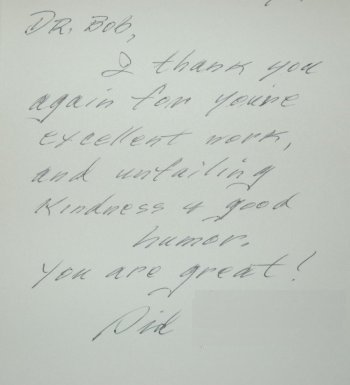 DR. BOB,
I thank you
again for youre
excellent work,
and unfailing
kindness & good
humor.
You are great!
Sid